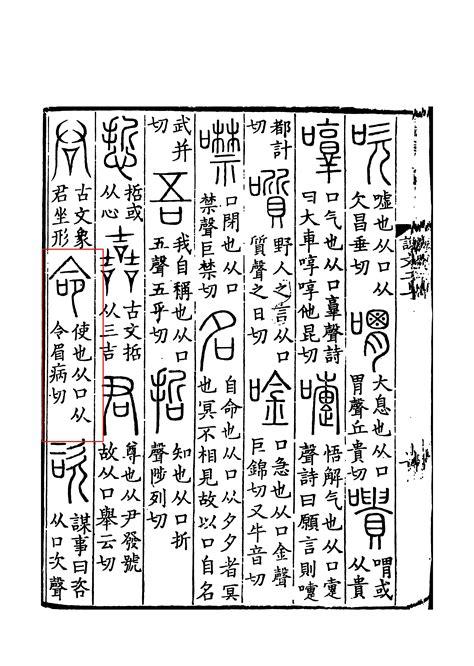 吹 噓也从口从欠昌垂切 喟 大息也从口胃聲丘貴切 嘳 喟或从貴
啍 口气也从口𦎫聲詩曰大車啍啍他昆切 嚏 悟解气也从口疐聲詩曰願言則嚏
都計切 㗧 野人之言从口質聲之日切 唫 口急也从口金聲巨錦切又牛音切
噤 口閉也从口禁聲巨禁切 名 自命也从口从夕夕者冥也冥不相見故以口自名
武并切 吾 我自稱也从口五聲五乎切 哲 知也从口折聲陟列切
悊 哲或从心 嚞 古文哲从三吉 君 尊也从尹發號故从口舉云切
古文象君坐形 命 使也从口从令眉病切 咨 謀事曰咨从口次聲